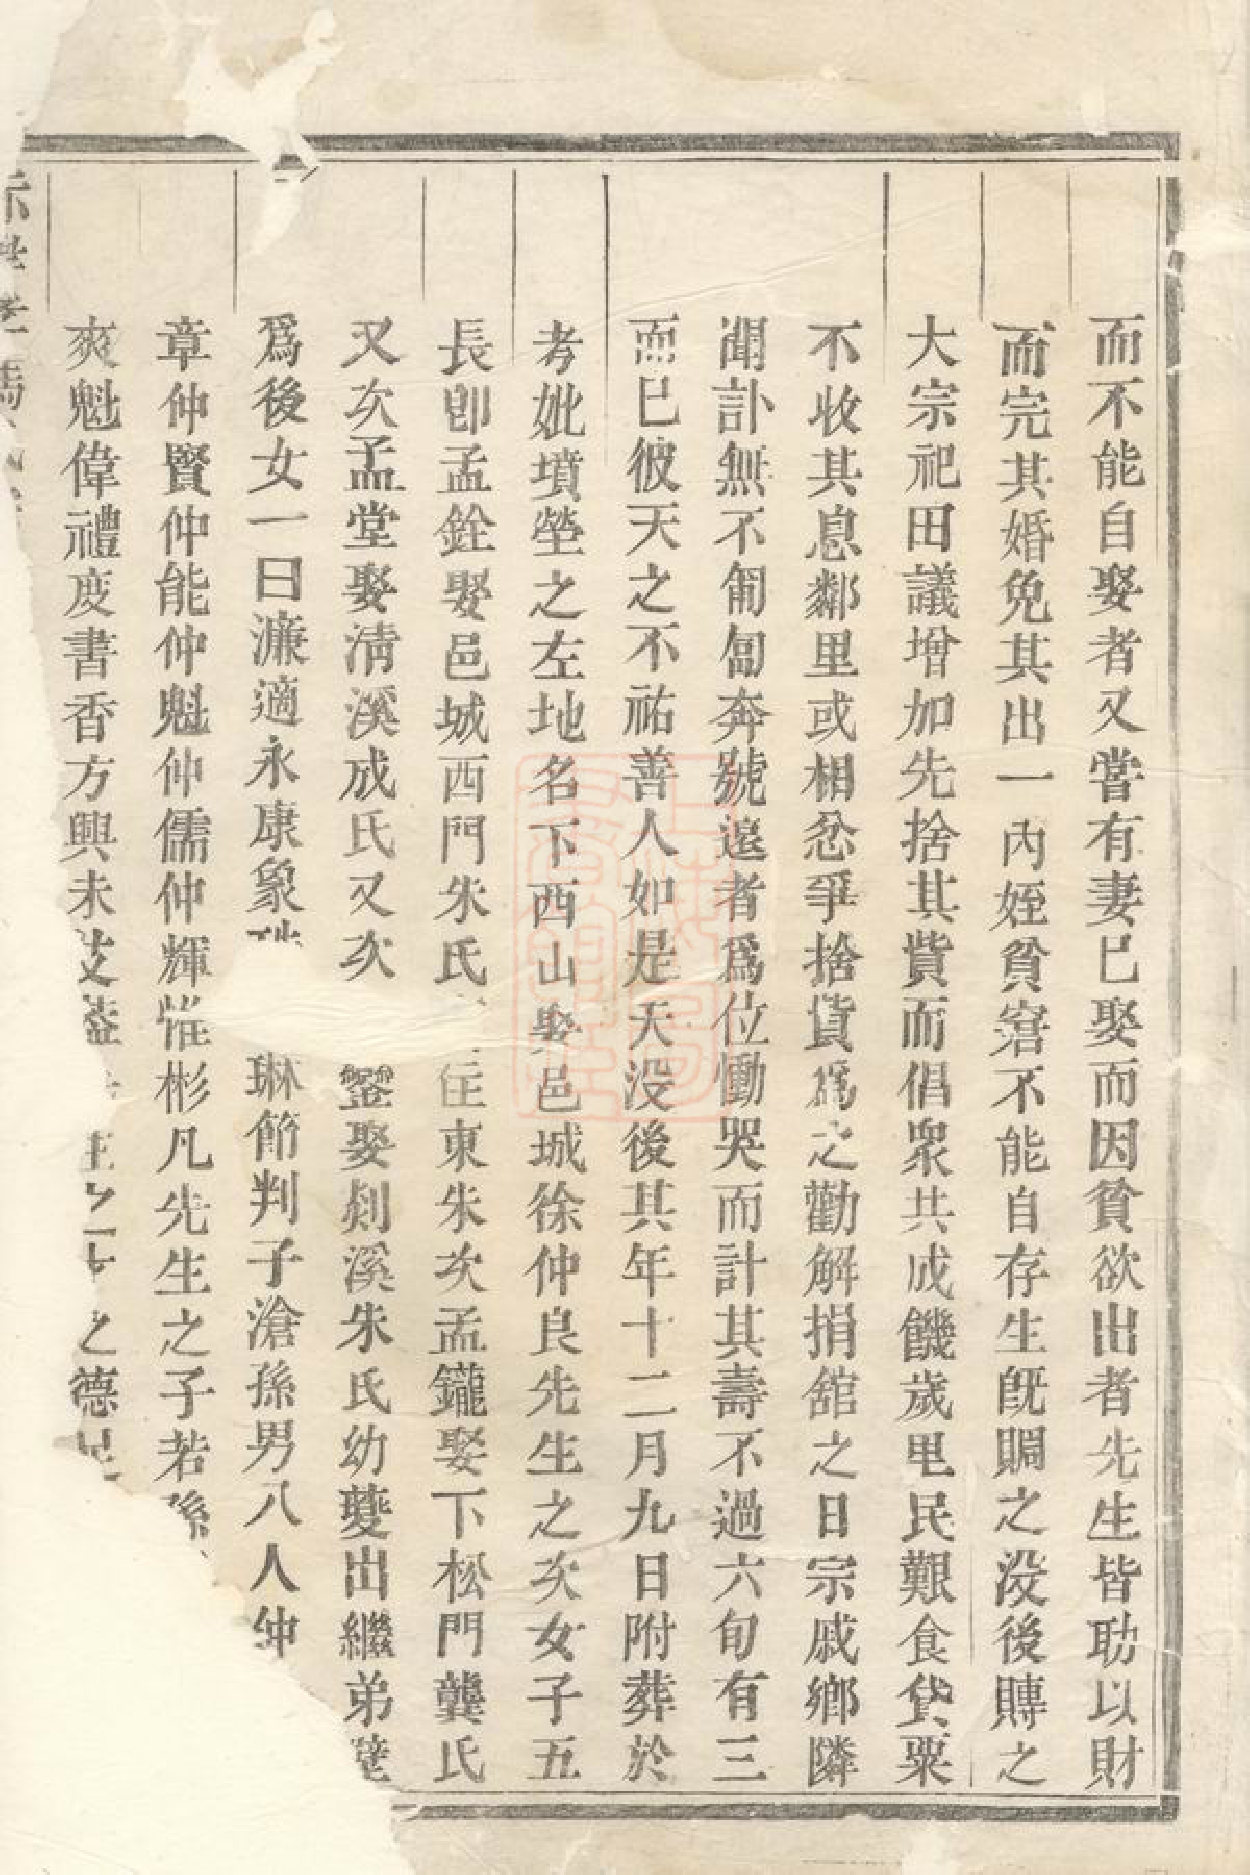 而不能自娶者又嘗有妻已娶而因貧欲出者先生皆助以財
而完其婚免其出一內姪貧窘不能自存生旣賙之没後賻之
大宗祀田議增加先捨其貲而倡衆共成饑歲甿民艱食貸粟
不收其息鄰里或相忿爭捨貲爲之勸解捐舘之日宗戚鄉隣
聞訃無不匍匐奔號遠者爲位慟哭而計其壽不過六旬有三
而已彼天之不祐善人如是夭没後其年十二月九日附葬於
考妣墳塋之左地名下西山娶邑城徐仲良先生之次女子五
長卽孟銓娶邑城西門朱氏東朱次孟鑨娶下松門龔氏
又次孟堂娶清溪成氏又次娶剡溪朱氏幼出繼弟
爲後女一曰濂適永康象琳節判子滄孫男八人仲
章仲賢仲能仲魁仲儒仲輝惟彬凡先生之子若孫
爽魁偉禮度書香方興未艾之德足